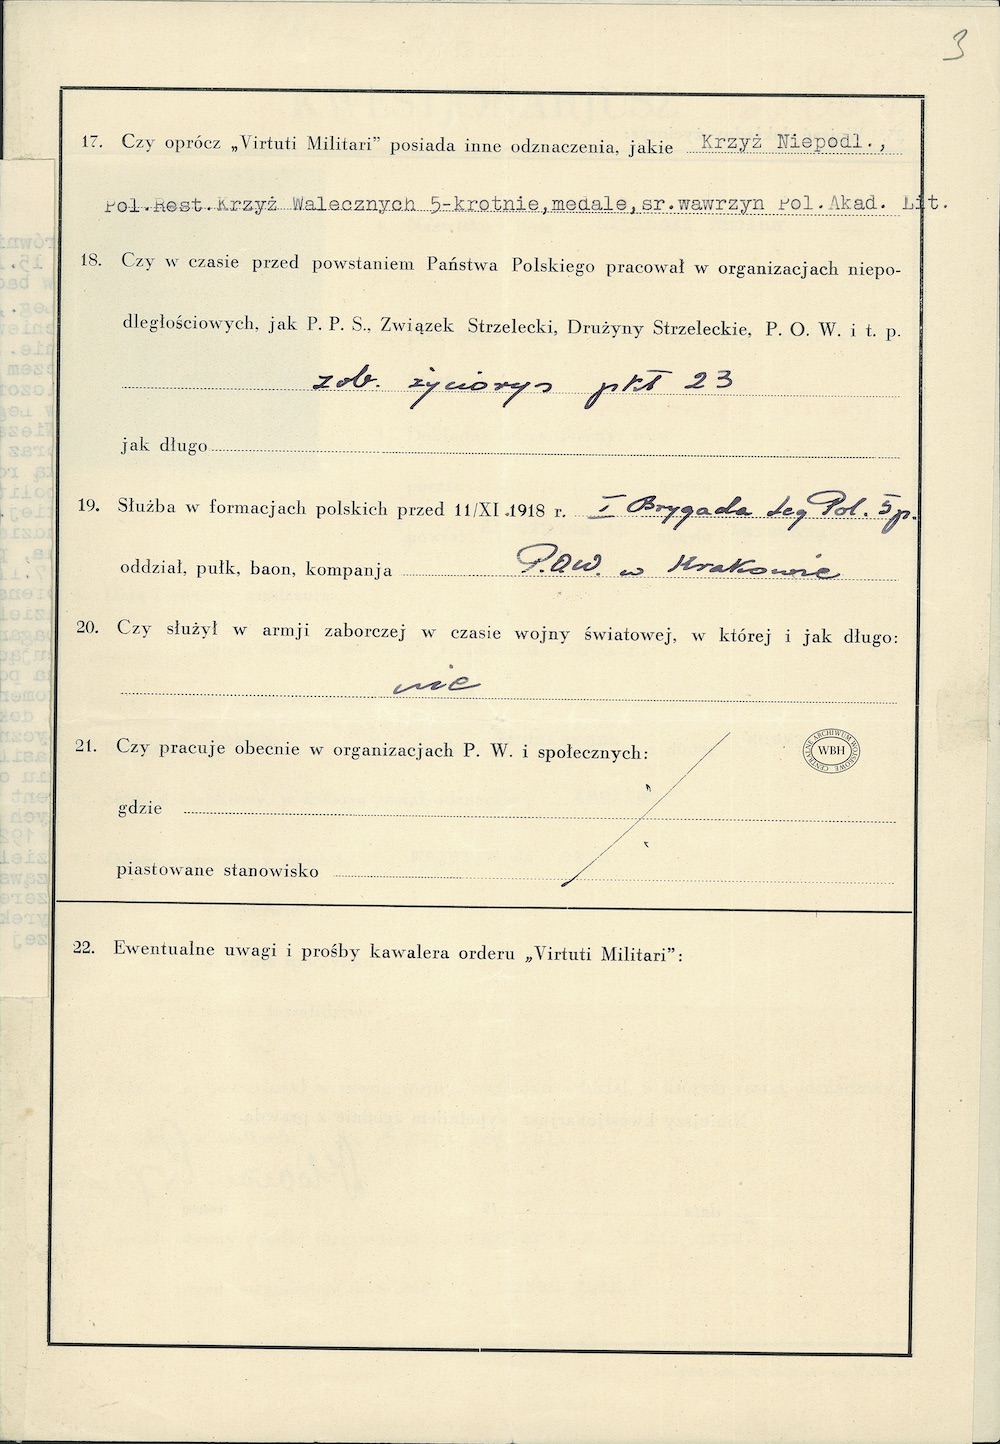 3
17. Czy oprócz „Virtuti Militari” posiada inne odznaczenia, jakie Krzyż Niepodl.,
Pol.Rest.Krzyż Walecznych 5-krotnie,medale,sr.wawrzyn Pol.Akad. Lit.
18. Czy w czasie przed powstaniem Państwa Polskiego pracował w organizacjach niepo-
dległościowych, jak P. P. S., Związek Strzelecki, Drużyny Strzeleckie, P. O. W. i t. p.
zob. życiorys pkt 23
jak długo
19. Służba w formacjach polskich przed 11/XI.1918 r. I Brygada Leg Pol. 5 p.
oddział, pułk, baon, kompanja P.O.W. w Krakowie
20. Czy służył w armji zaborczej w czasie wojny światowej, w której i jak długo:
nie
21. Czy pracuje obecnie w organizacjach P. W. i społecznych:
CENTRALNE ARCHIWUM WOJSKOWE
WBH
gdzie
piastowane stanowisko
22. Ewentualne uwagi i prośby kawalera orderu „Virtuti Militari”: